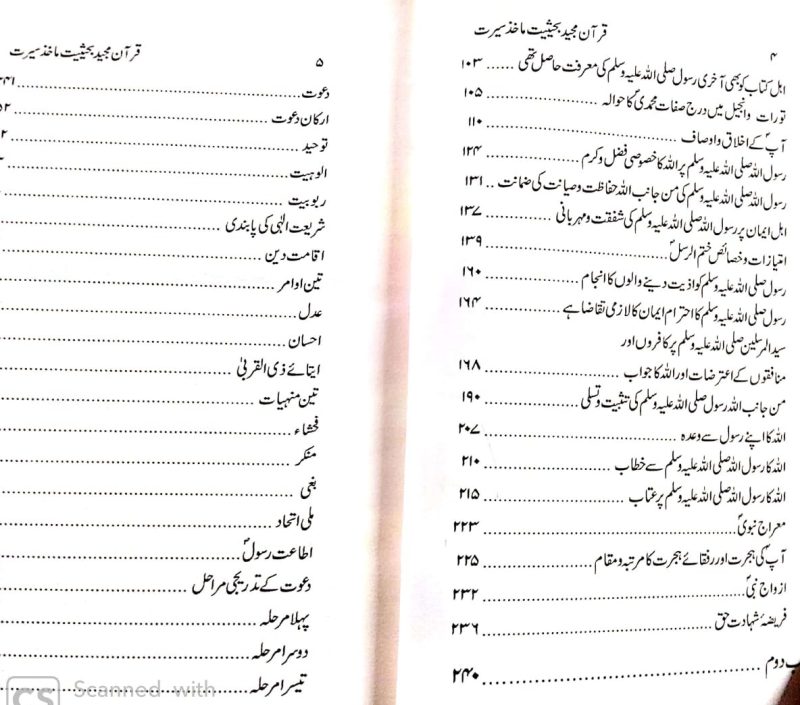 قرآن مجید بحیثیت ماخذ سیرت
۴
اہل کتاب کو بھی آخری رسول صلی اللہ علیہ وسلم کی معرفت حاصل تھی ...... ۱۰۳
تورات وانجیل میں درج صفات محمدیؐ کا حوالہ ...... ۱۰۵
آپؐ کے اخلاق واوصاف ...... ۱۱۰
رسول اللہ صلی اللہ علیہ وسلم پر اللہ کا خصوصی فضل وکرم ...... ۱۲۴
رسول اللہ صلی اللہ علیہ وسلم کی من جانب اللہ حفاظت وصیانت کی ضمانت .. ۱۳۱
اہل ایمان پر رسول اللہ صلی اللہ علیہ وسلم کی شفقت ومہربانی ...... ۱۳۷
امتیازات وخصائص ختم الرسلؐ ...... ۱۳۹
رسول صلی اللہ علیہ وسلم کو اذیت دینے والوں کا انجام ...... ۱۶۰
رسول صلی اللہ علیہ وسلم کا احترام ایمان کا لازمی تقاضا ہے ...... ۱۶۴
سید المرسلین صلی اللہ علیہ وسلم پر کافروں اور
منافقوں کے اعتراضات اور اللہ کا جواب ...... ۱۶۸
من جانب اللہ رسول صلی اللہ علیہ وسلم کی تثبیت وتسلی ...... ۱۹۰
اللہ کا اپنے رسول سے وعدہ ...... ۲۰۷
اللہ کا رسول اللہ صلی اللہ علیہ وسلم سے خطاب ...... ۲۱۰
اللہ کا رسول اللہ صلی اللہ علیہ وسلم پر عتاب ...... ۲۱۵
معراج نبویؐ ...... ۲۲۳
آپؐ کی ہجرت اور رفقائے ہجرت کا مرتبہ ومقام ...... ۲۲۵
ازواج نبیؐ ...... ۲۳۲
فریضۂ شہادت حق ...... ۲۳۶
دوم ...... ۲۴۰
قرآن مجید بحیثیت ماخذ سیرت
۵
دعوت ...... ۲۴۱
ارکان دعوت ......
توحید ......
الوہیت ......
ربوبیت ......
شریعت الٰہی کی پابندی ......
اقامت دین ......
تین اوامر ......
عدل ......
احسان ......
ایتائے ذی القربیٰ ......
تین منہیات ......
فحشاء ......
منکر ......
بغی ......
ملی اتحاد ......
اطاعت رسولؐ ......
دعوت کے تدریجی مراحل ......
پہلا مرحلہ ......
دوسرا مرحلہ ......
تیسرا مرحلہ ......
CS Scanned with